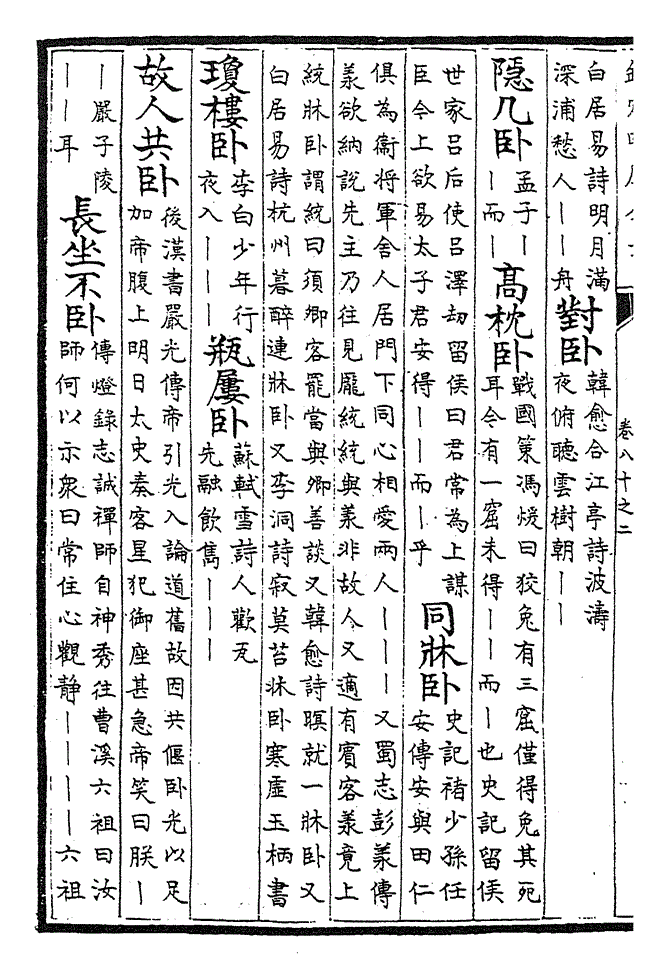 卷八十之二
白居易詩明月滿
深浦愁人丨丨舟
對卧
韓愈合江亭詩波濤
夜俯聽雲樹朝丨丨
隠几卧
孟子丨
丨而丨
髙枕卧
戰國策馮煖曰狡兔有三窟僅得免其死
耳今有一窟未得丨丨而丨也史記留侯
世家吕后使吕澤劫留侯曰君常為上謀
臣今上欲易太子君安得丨丨而丨乎
同牀卧
史記褚少孫任
安傳安與田仁
俱為衞将軍舍人居門下同心相愛兩人丨丨丨又蜀志彭羕傳
羕欲納說先主乃往見龎統統與羕非故人又適有賓客羕竟上
統牀卧謂統曰須卿客罷當與卿善談又韓愈詩暝就一牀卧又
白居易詩杭州暮醉連牀卧又李洞詩寂莫苔牀卧寒虚玉柄書
瓊樓卧
李白少年行
夜入丨丨丨
瓶屢卧
蘇軾雪詩人歡瓦
先融飲雋丨丨丨
故人共卧
後漢書嚴光傳帝引光入論道舊故因共偃卧光以足
加帝腹上明日太史奏客星犯御座甚急帝笑曰朕丨
丨嚴子陵
丨丨耳
長坐不卧
傳燈錄志誠禪師自神秀往曹溪六祖曰汝
師何以示衆曰常住心觀静丨丨丨丨六祖